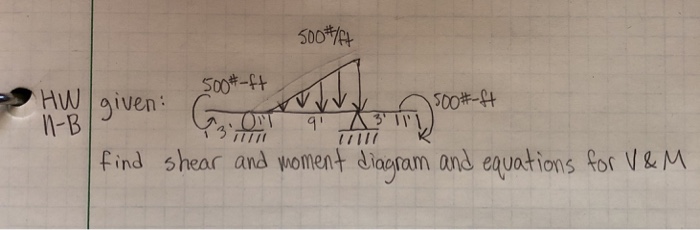 500#/ft
500#-ft
HW given:
11-B
500#-ft
3' 9' 3'
find shear and moment diagram and equations for V & M